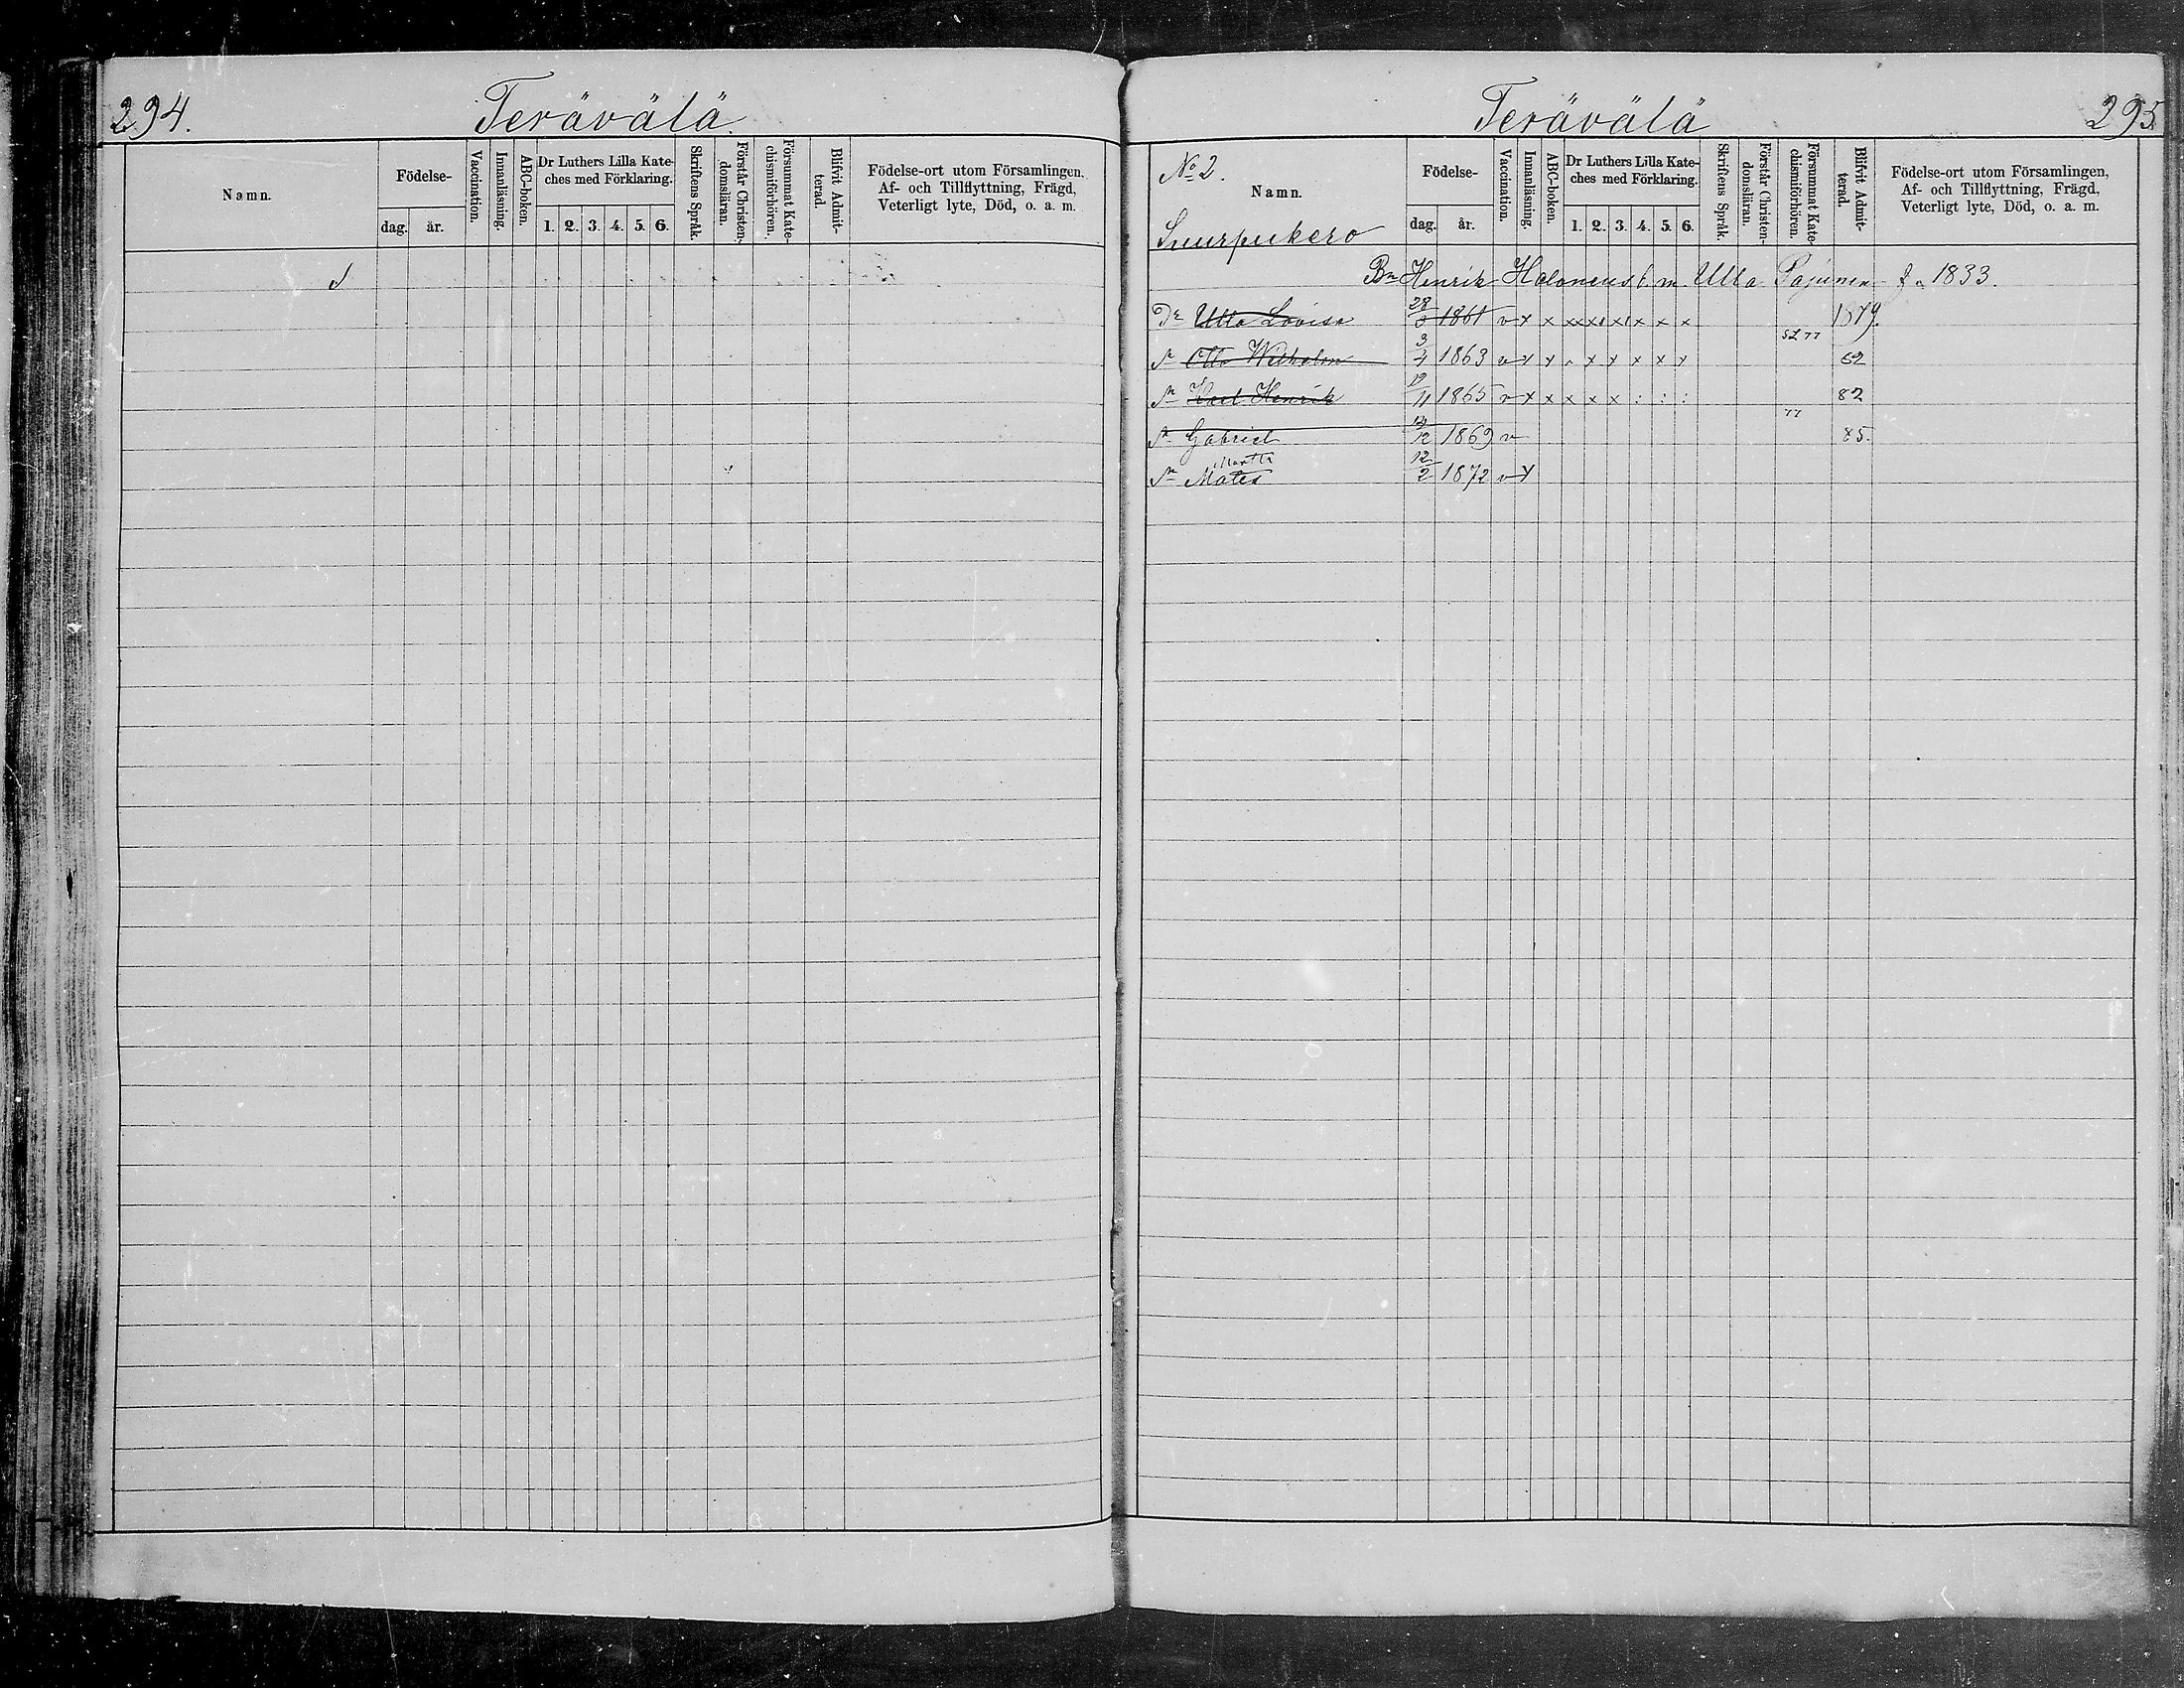 294.
Terävälä
Namn.
Födelse-
dag.
år.
Vaccination.
Innanläsning.
ABC-boken.
Dr Luthers Lilla Kate-
ches med Förklaring.
1. 2. 3. 4. 5. 6.
Skriftens Språk.
Förstår Christen-
domsläran.
Försummat Kate-
chismiförhören.
Blifvit Admit-
terad.
Födelse-ort utom Församlingen,
Af- och Tillflyttning, Frägd,
Veterligt lyte, Död, o. a. m.
Terävälä
295
No 2.
Namn.
Suurpukero
Födelse-
dag.
år.
Vaccination.
Innanläsning.
ABC-boken.
Dr Luthers Lilla Kate-
ches med Förklaring.
1. 2. 3. 4. 5. 6.
Skriftens Språk.
Förstår Christen-
domsläran.
Försummat Kate-
chismiförhören.
Blifvit Admit-
terad.
Födelse-ort utom Församlingen,
Af- och Tillflyttning, Frägd,
Veterligt lyte, Död, o. a. m.
Bn Henrik Halonens b. m. Ulla Pajunen f. 1833.
Dr Ulla Lovisa 28 1861 v x x xx x x x x x 1879.
Sn Otto Wilhelm 3/4 1863 v x x x x x x x 77 82
Sn Karl Henrik 19/11 1865 v x x x x x : : : 82
Sn Gabriel 12 1869 v 77 85.
Sn Mats Martti 12/2 1872 v x